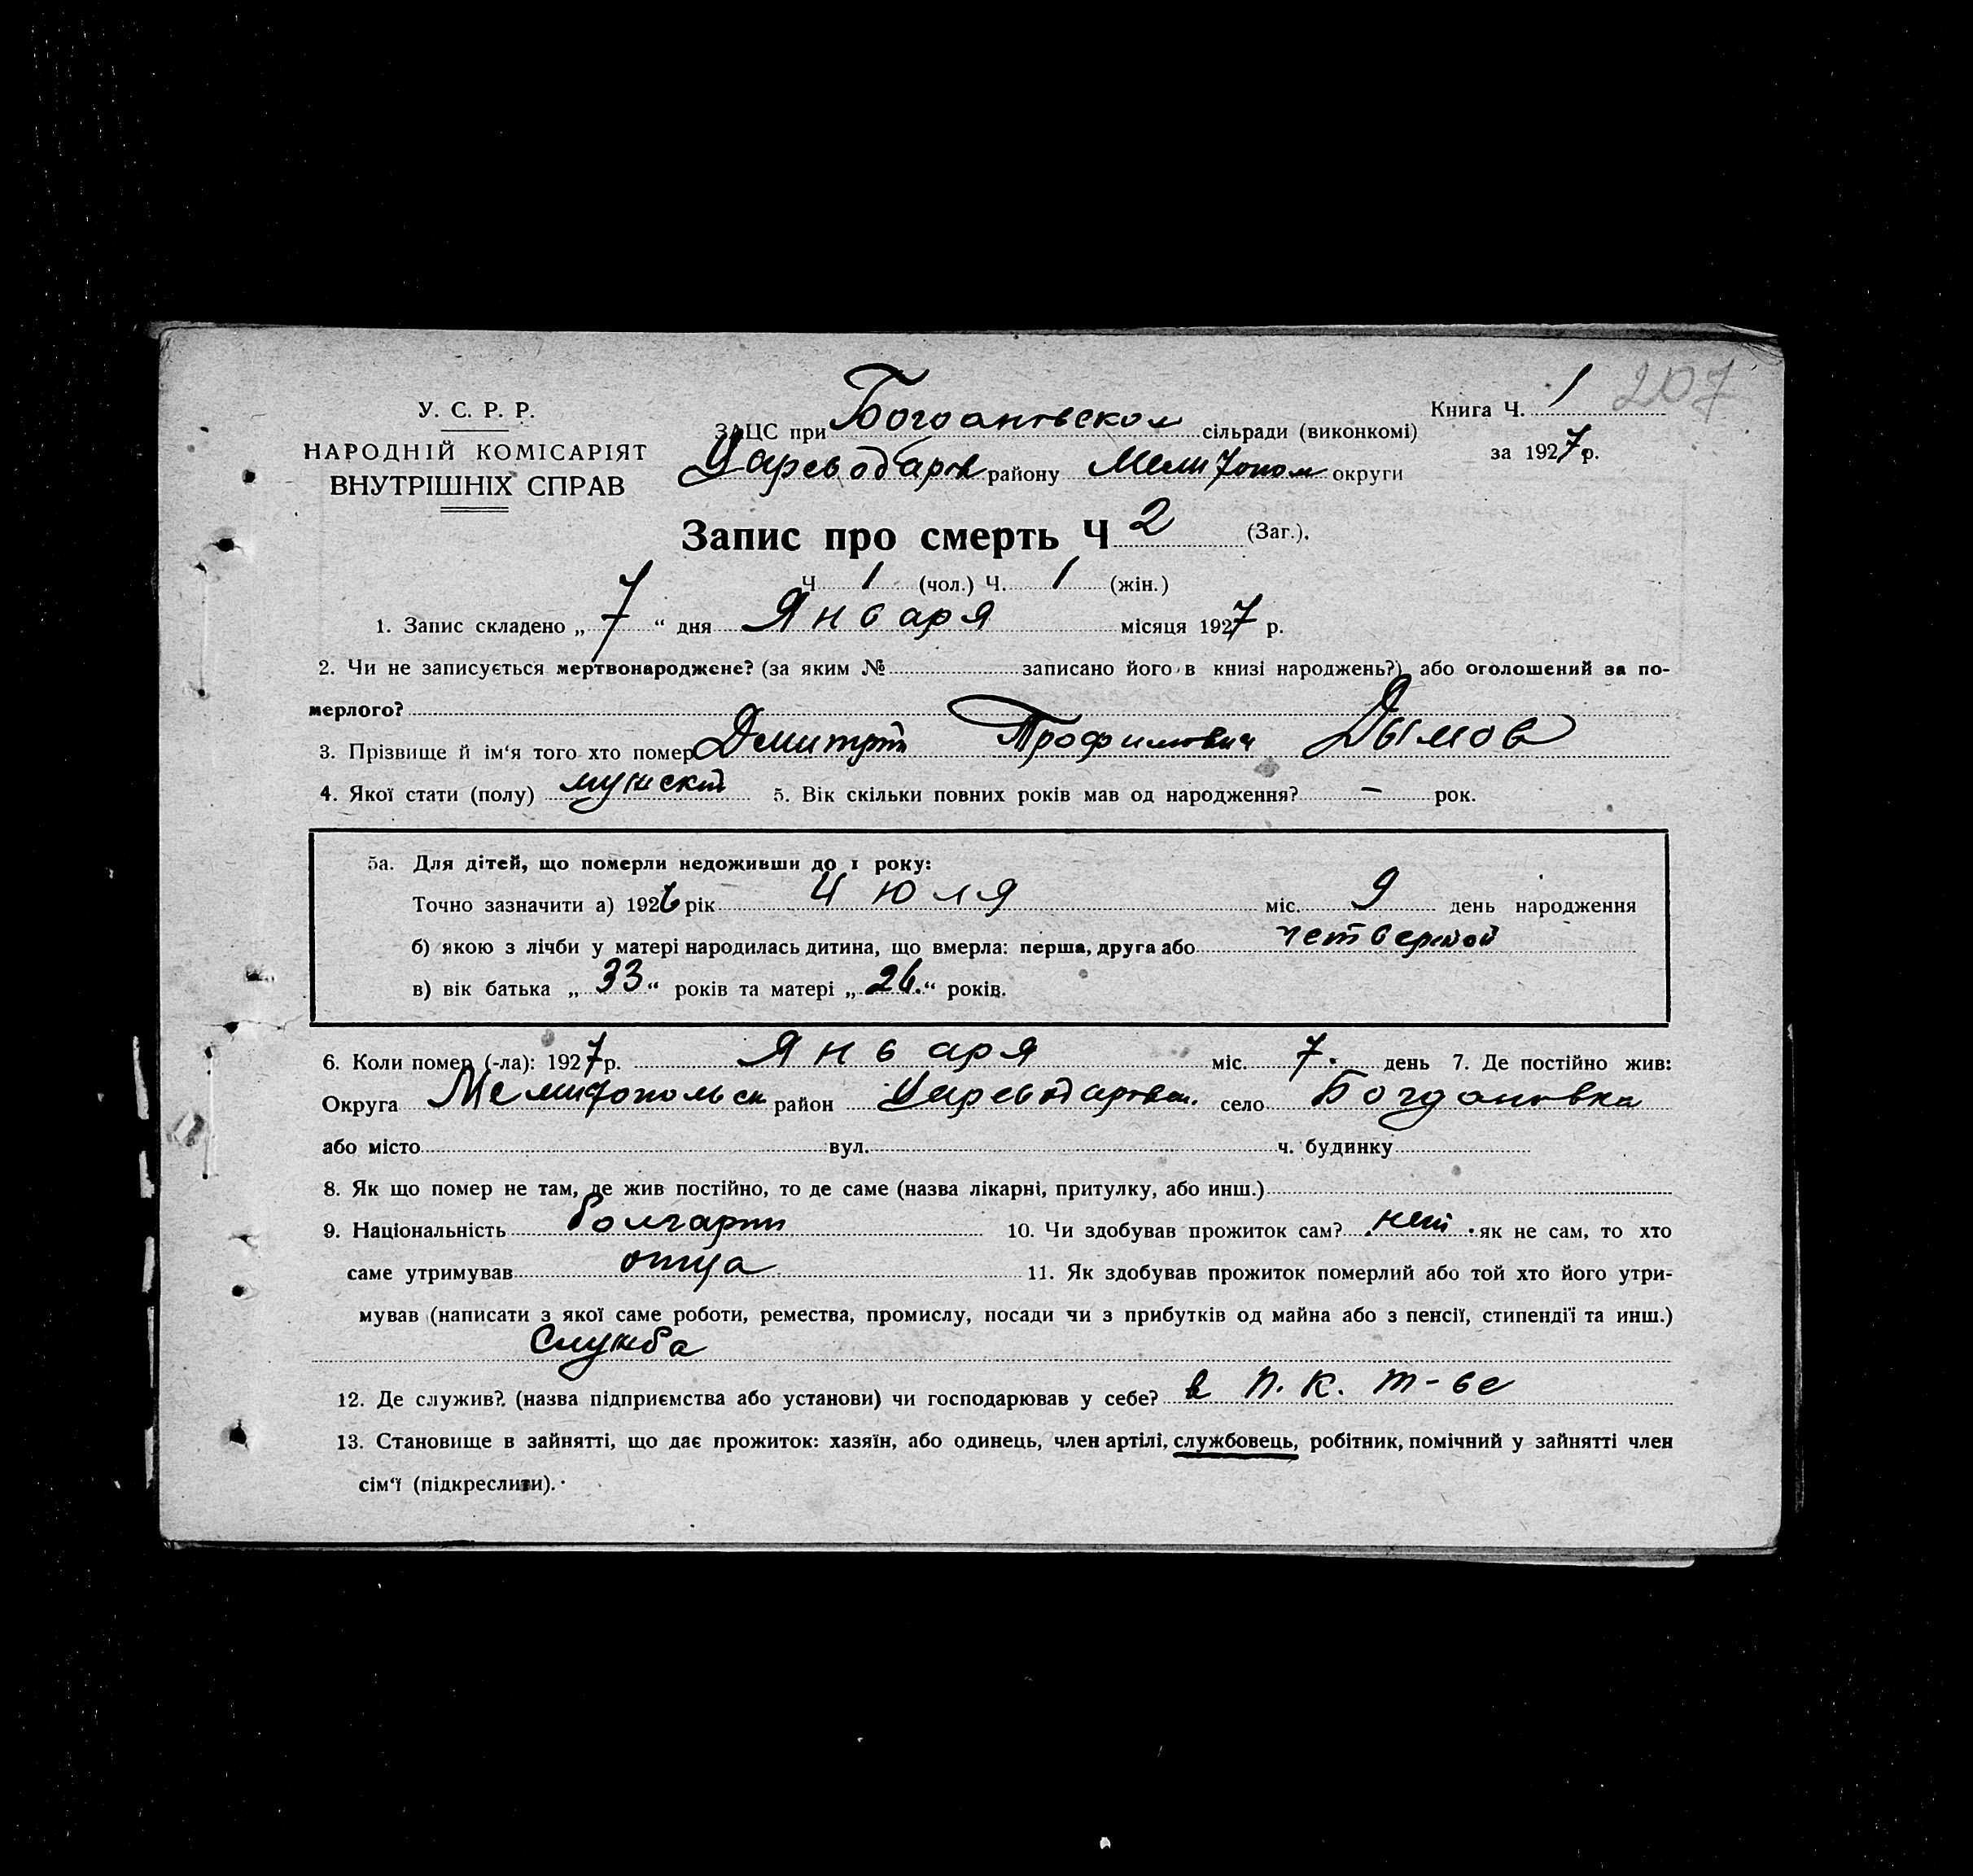 207
У. С. Р. Р.
НАРОДНІЙ КОМІСАРІЯТ
ВНУТРІШНІХ СПРАВ
ЗАЦС при Богдановском сільради (виконкомі)
Цареводаров району Мелитопол округи
Книга Ч. 1
за 1927 р.
Запис про смерть Ч 2 (Заг.).
Ч 1 (чол.) Ч. 1 (жін.)
1. Запис складено „ 7 “ дня Января місяця 1927 р.
2. Чи не записується мертвонароджене? (за яким № записано його в книзі народжень?) або оголошений за по-
мерлого?
3. Прізвище й ім‘я того хто помер Дмитрий Трофимович Дымов
4. Якої стати (полу) мужский 5. Вік скільки повних років мав од народження? — рок.
5а. Для дітей, що померли недоживши до 1 року:
Точно зазначити а) 1926 рік Июля міс. 9 день народження
б) якою з лічби у матері народилась дитина, що вмерла: перша, друга або четвертой
в) вік батька „ 33 “ років та матері „ 26. “ років.
6. Коли помер (-ла): 1927 р. Января міс. 7. день 7. Де постійно жив:
Округа Мелитопольск район Цареводаровск. село Богдановка
або місто вул. ч. будинку
8. Як що помер не там, де жив постійно, то де саме (назва лікарні, притулку, або инш.)
9. Національність болгарин 10. Чи здобував прожиток сам? нет як не сам, то хто
саме утримував отца 11. Як здобував прожиток померлий або той хто його утри-
мував (написати з якої саме роботи, ремества, промислу, посади чи з прибутків од майна або з пенсії, стипендії та инш.)
Служба
12. Де служив? (назва підприємства або установи) чи господарював у себе? в п. к. т-ве
13. Становище в зайнятті, що дає прожиток: хазяїн, або одинець, член артілі, службовець, робітник, помічний у зайнятті член
сім‘ї (підкреслити).